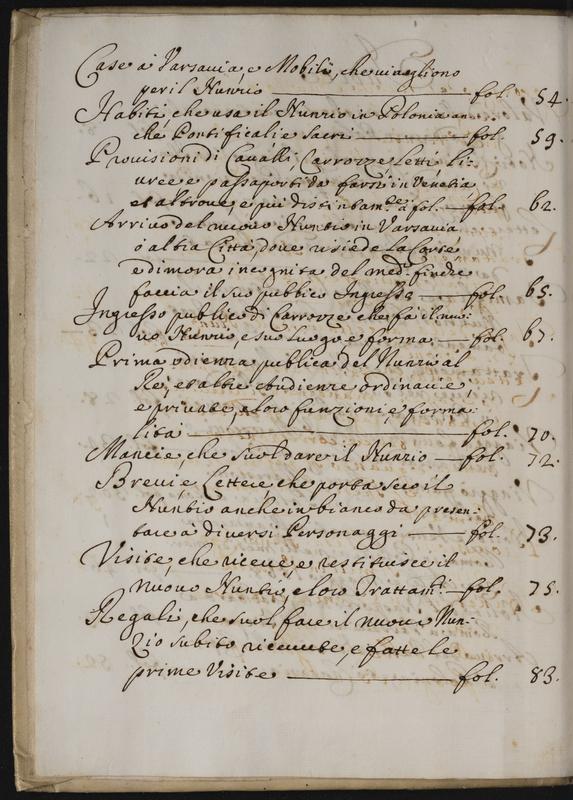 Case à Varsavia, e Mobili, che vi vogliono
per il Nunzio fol. 54.
Habiti che usa il Nunzio in Polonia an-
che Pontificali e Sacri fol. 59.
Provisioni di Cavalli, Carrozze Letti, Li-
vree e passaporti da farsi in Venetia
et altrove, e più distintam.te à fol. fol. 62.
Arrivo del nuovo Nuntio in Varsavia
ò altra Città, dove risiede La Corte
e dimora incognita del med.mo finche
faccia il suo pubblico Ingresso fol. 65.
Ingresso publico di Carrozze che fà il nuo-
vo Nunzio e suo Luogo e forma fol. 67.
Prima udienza publica del Nunzio al
Rè, et altre Audienze ordinarie,
e private, e loro funzioni, e forma-
lità fol. 70.
Mancie, che suol dare il Nunzio fol. 72.
Brevi e Lettere che porta seco il
Nuntio anche in bianco da presen-
tare à diversi Personaggi fol. 73.
Visite, che riceve e restituisce il
nuovo Nuntio, e loro Trattam.ti fol. 75.
Regali, che suol fare il nuovo Nun-
zio subito ricevute, e fatte le
prime Visite fol. 83.